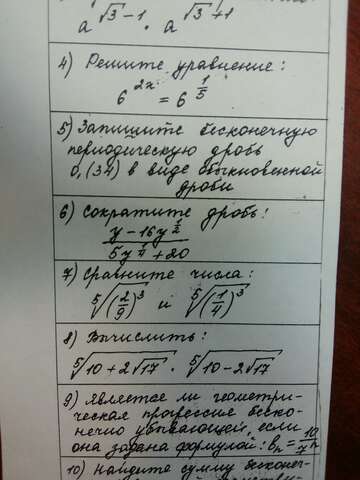 a^{√3-1} · a^{√3+1}
4) Решите уравнение:
6^{2x} = 6^{1/5}
5) Запишите бесконечную
периодическую дробь
0,(34) в виде обыкновенной
дроби
6) Сократите дробь:
(y - 16y^{1/2}) / (5y^{1/4} + 20)
7) Сравните числа:
⁵√(2/9)³ и ⁵√(1/4)³
8) Вычислить:
⁵√(10 + 2√17) · ⁵√(10 - 2√17)
9) Является ли геометри-
ческая прогрессия беско-
нечно убывающей, если
она задана формулой: bₙ = 10/7ⁿ
10) Найдите сумму бесконеч-